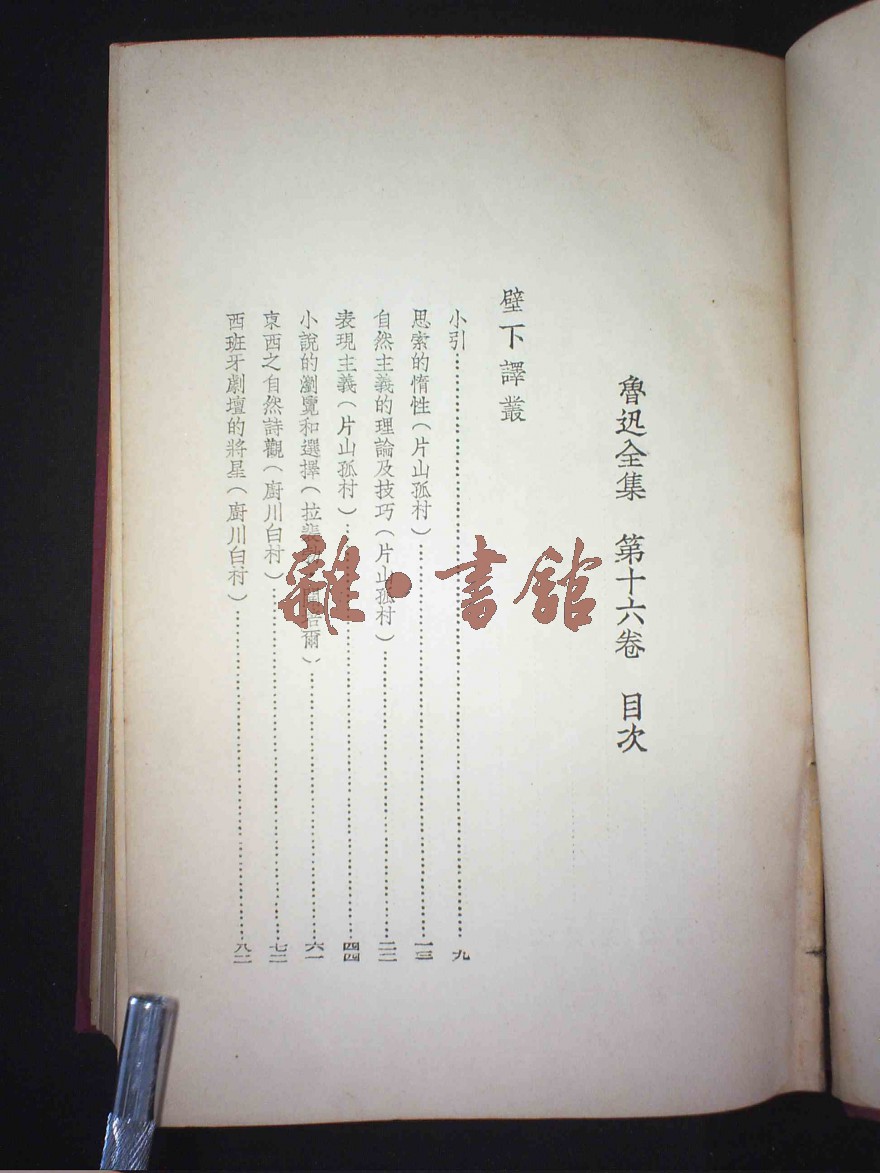 魯迅全集 第十六卷 目次
壁下譯叢
小引……九
思索的惰性(片山孤村)……一三
自然主義的理論及技巧(片山孤村)……二二
表現主義(片山孤村)……四四
小說的瀏覽和選擇(拉裴 爾)……六一
東西之自然詩觀(廚川白村)……七二
西班牙劇壇的將星(廚川白村)……八二
雜·書館